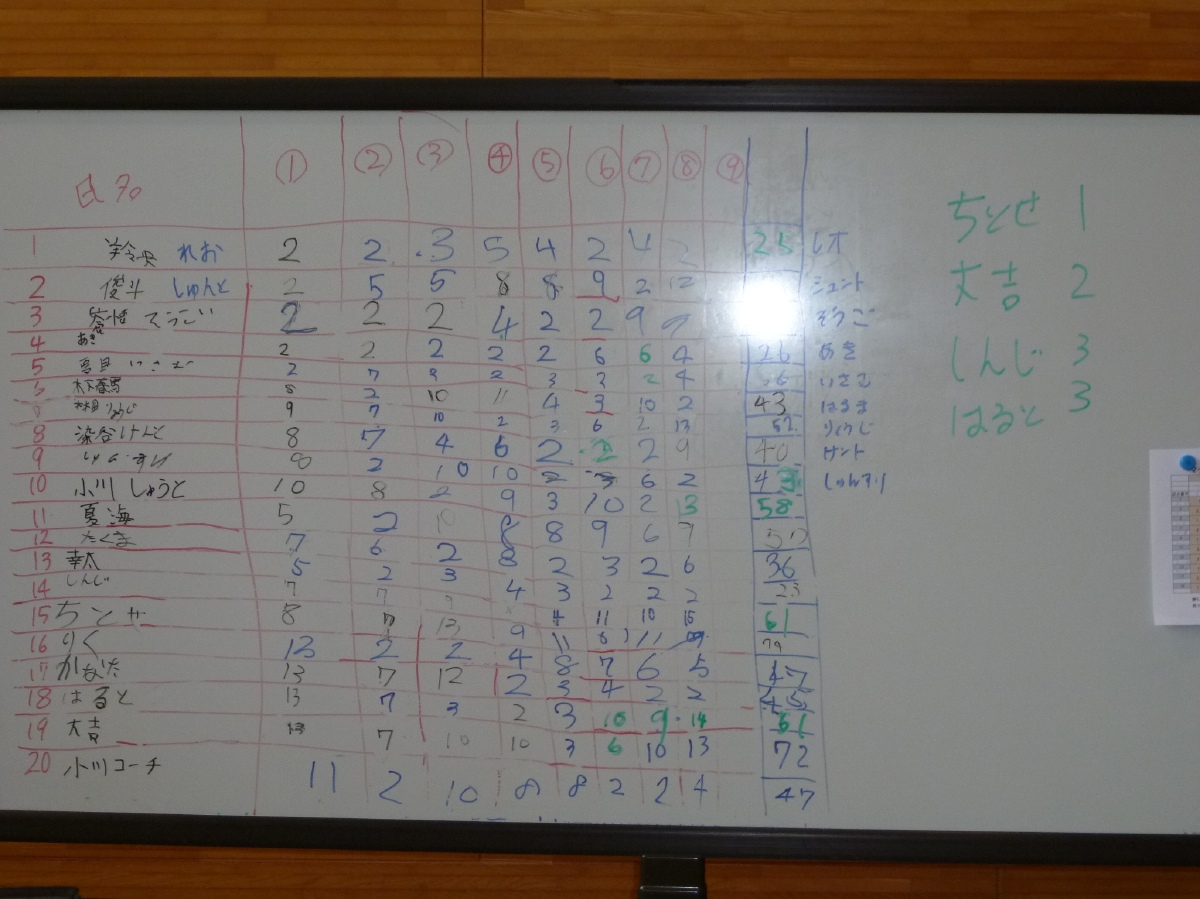 氏名 ① ② ③ ④ ⑤ ⑥ ⑦ ⑧ ⑨
1 羚央 れお 2 2 3 5 4 2 4 2 25 レオ
2 俊斗 しゅんと 2 5 5 8 8 9 2 12 シュント
3 2 2 2 4 2 2 9 9 ぞうご
4 あき 2 2 2 2 2 6 6 4 26 あき
5 2 7 2 3 3 2 4
6 2 10 11 4 3 10 2 43 はるま
9 7 10 2 3 6 2 13 52 りゅうじ
8 染谷けんと 8 7 4 6 2 2 2 9 40 ケント
9 8 2 10 10 2 3 6 2 43
10 小川 しゅうと 10 8 2 9 3 10 2 13 58
11 夏海 5 2 10 8 8 9 6 7
12 たくま 7 6 2 8 2 3 2 6 36
13 幸太 5 2 3 4 3 2 2 2 23
14 しんじ 7 7 9 9 4 11 10 15 61
15 ちとせ 8 7 13 11 6 11 79
16 りく 13 2 2 4 8 7 6 5 47
17 かなた 13 7 12 2 3 4 2 2 45
18 はると 13 7 3 2 3 10 9 14 61
19 大吉 13 7 10 10 3 6 10 13 72
20 小川コーチ 11 2 10 8 8 2 2 4 47
ちとせ 1
大吉 2
しんじ 3
はると 3